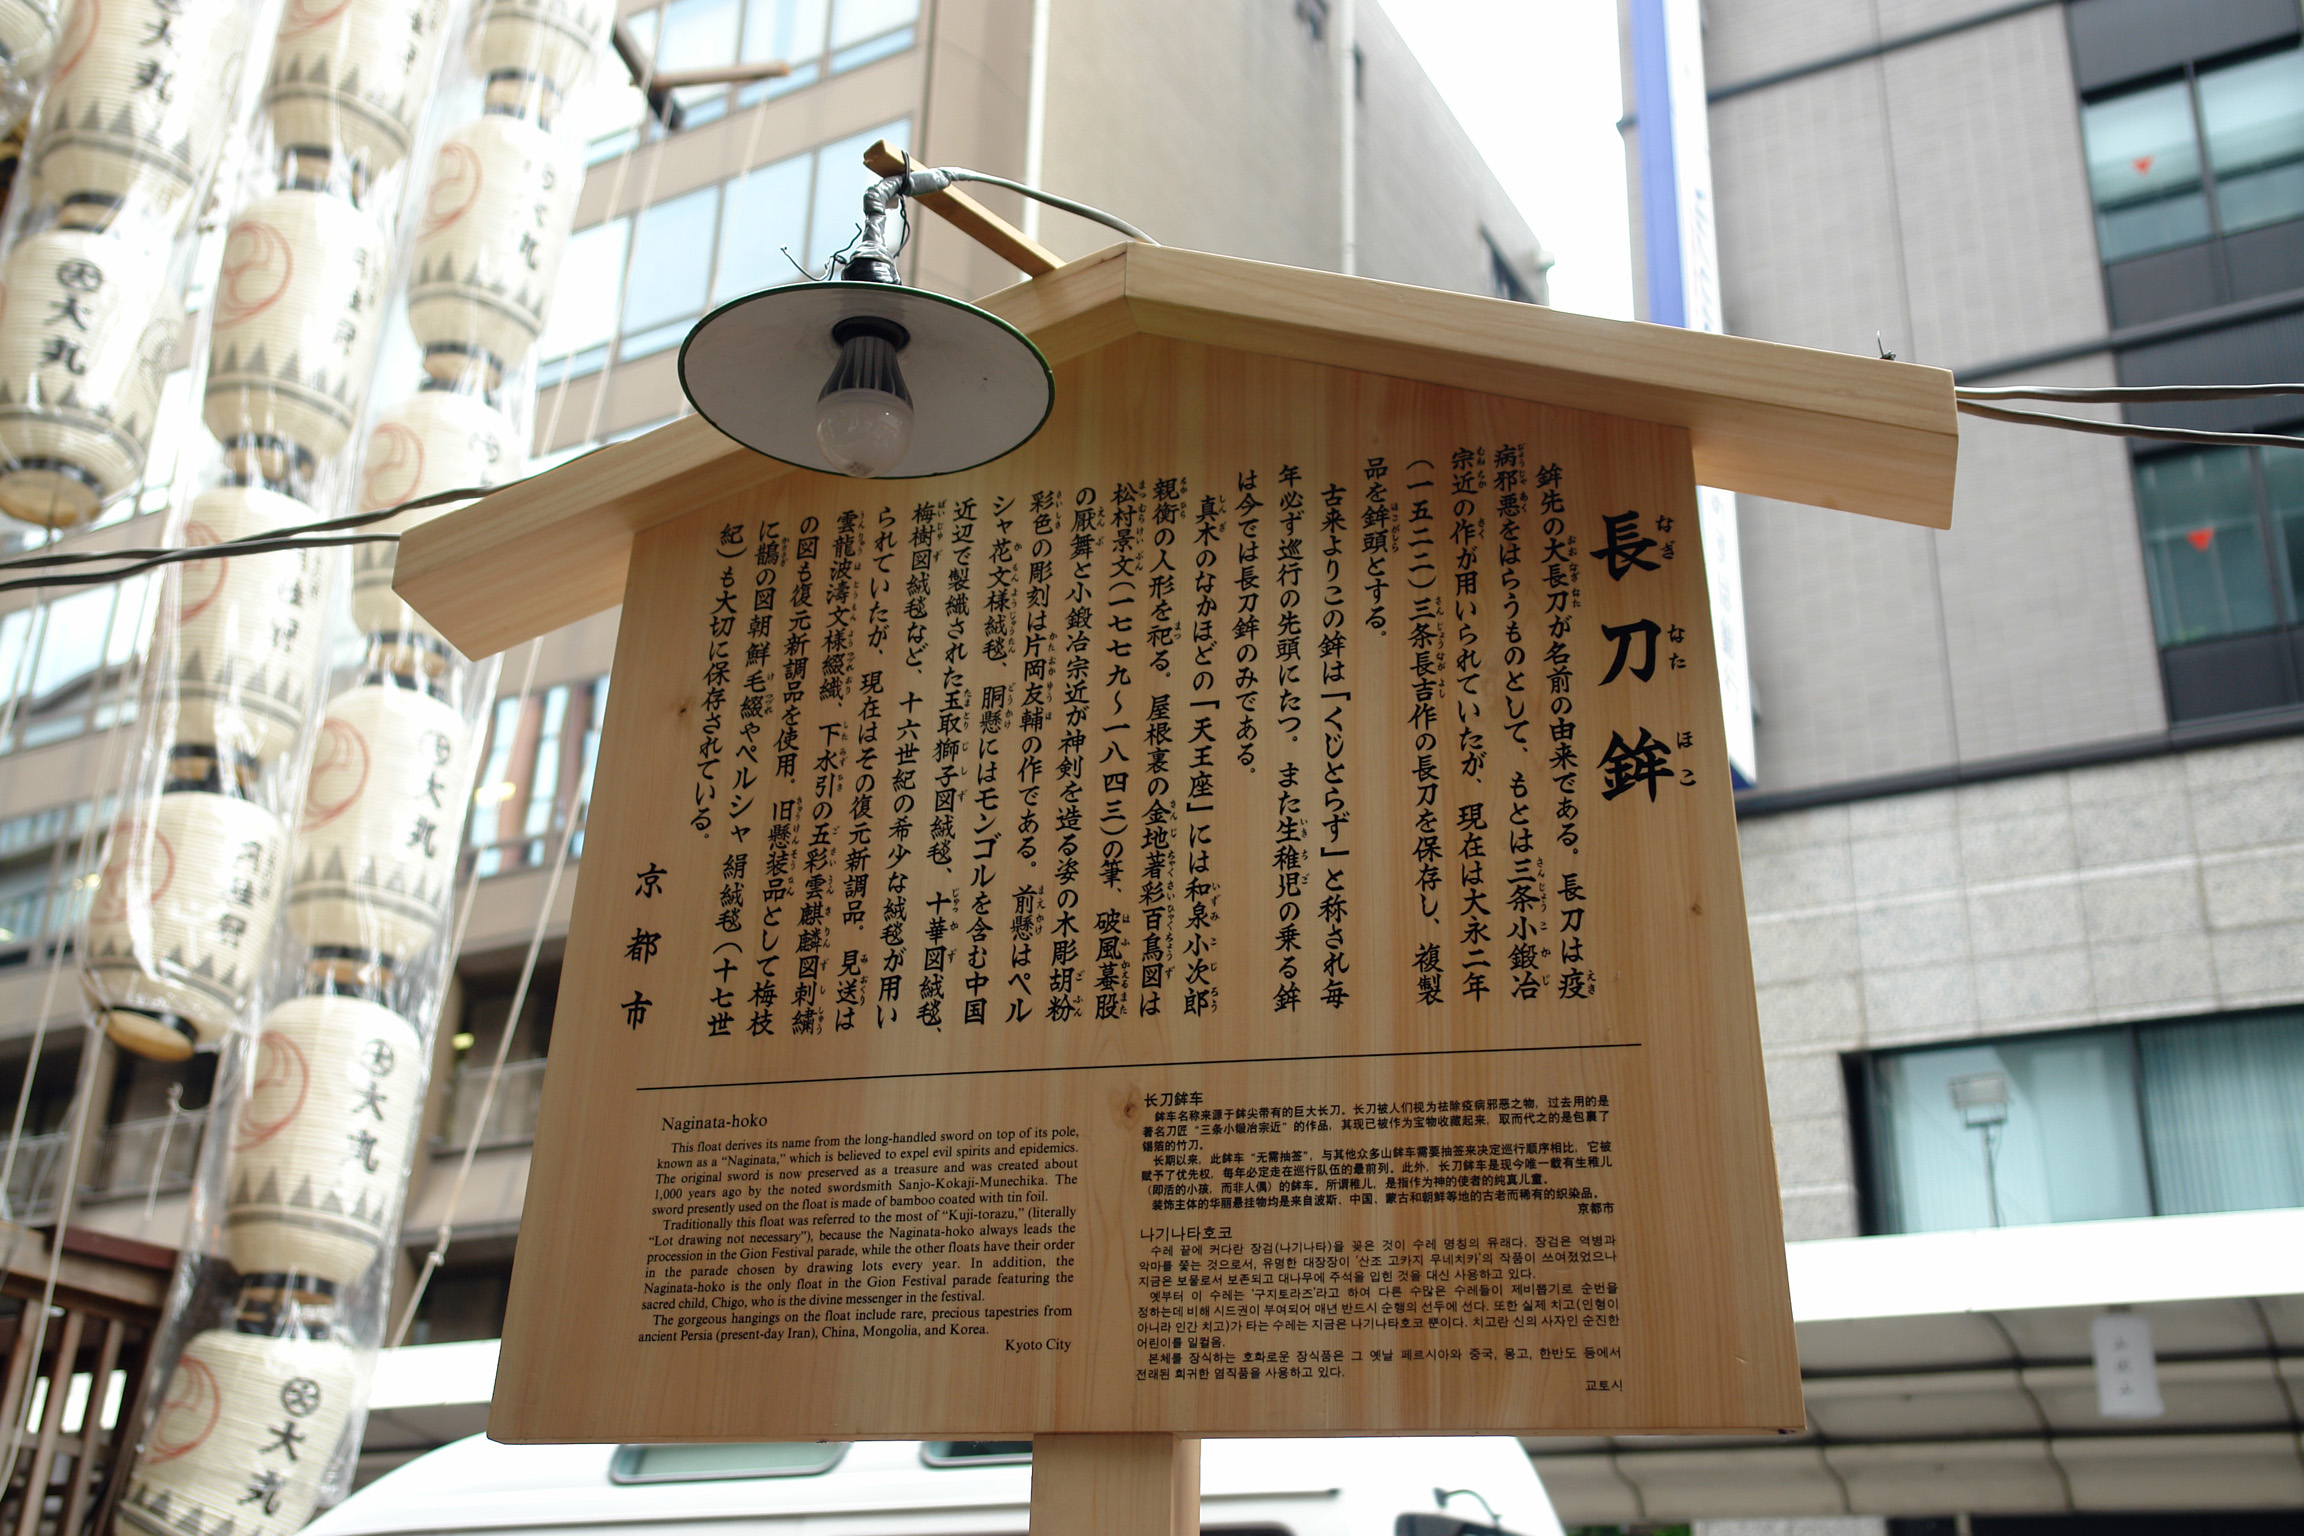 長刀鉾
鉾先の大長刀が名前の由来である。長刀は疫
病邪悪をはらうものとして、もとは三条小鍛冶
宗近の作が用いられていたが、現在は大永二年
(一五二二)三条長吉作の長刀を保存し、複製
品を鉾頭とする。
古来よりこの鉾は「くじとらず」と称され毎
年必ず巡行の先頭にたつ。また生稚児の乗る鉾
は今では長刀鉾のみである。
真木のなかほどの「天王座」には和泉小次郎
親衡の人形を祀る。屋根裏の金地著彩百鳥図は
松村景文(一七七九〜一八四三)の筆、破風蟇股
の厭舞と小鍛冶宗近が神剣を造る姿の木彫胡粉
彩色の彫刻は片岡友輔の作である。前懸はペル
シャ花文様絨毯、胴懸にはモンゴルを含む中国
近辺で製織された玉取獅子図絨毯、十華図絨毯、
梅樹図絨毯など、十六世紀の希少な絨毯が用い
られていたが、現在はその復元新調品。見送は
雲龍波濤文様綴織、下水引の五彩雲麒麟図刺繍
の図も復元新調品を使用。旧懸装品として梅枝
に鵲の図朝鮮毛綴やペルシャ絹絨毯(十七世
紀)も大切に保存されている。
京都市
Naginata-hoko
This float derives its name from the long-handled sword on top of its pole,
known as a “Naginata,” which is believed to expel evil spirits and epidemics.
The original sword is now preserved as a treasure and was created about
1,000 years ago by the noted swordsmith Sanjo-Kokaji-Munechika. The
sword presently used on the float is made of bamboo coated with tin foil.
Traditionally this float was referred to the most of “Kuji-torazu,” (literally
“Lot drawing not necessary”), because the Naginata-hoko always leads the
procession in the Gion Festival parade, while the other floats have their order
in the parade chosen by drawing lots every year. In addition, the
Naginata-hoko is the only float in the Gion Festival parade featuring the
sacred child, Chigo, who is the divine messenger in the festival.
The gorgeous hangings on the float include rare, precious tapestries from
ancient Persia (present-day Iran), China, Mongolia, and Korea.
Kyoto City
长刀鉾车
鉾车名称来源于鉾尖带有的巨大长刀。长刀被人们视为祛除疫病邪恶之物，过去用的是
著名刀匠“三条小锻冶宗近”的作品，其现已被作为宝物收藏起来，取而代之的是包裹了
锡箔的竹刀。
长期以来，此鉾车“无需抽签”，与其他众多山鉾车需要抽签来决定巡行顺序相比，它被
赋予了优先权，每年必定走在巡行队伍的最前列。此外，长刀鉾车是现今唯一载有生稚儿
（即活的小孩，而非人偶）的鉾车。所谓稚儿，是指作为神的使者的纯真儿童。
装饰主体的华丽悬挂物均是来自波斯、中国、蒙古和朝鲜等地的古老而稀有的织染品。
京都市
나기나타호코
수레 끝에 커다란 장검(나기나타)을 꽂은 것이 수레 명칭의 유래다. 장검은 역병과
악마를 쫓는 것으로서, 유명한 대장장이 ‘산조 고카지 무네치카’의 작품이 쓰여졌었으나
지금은 보물로서 보존되고 대나무에 주석을 입힌 것을 대신 사용하고 있다.
옛부터 이 수레는 ‘구지토라즈’라고 하여 다른 수많은 수레들이 제비뽑기로 순번을
정하는데 비해 시드권이 부여되어 매년 반드시 순행의 선두에 선다. 또한 실제 치고(인형이
아니라 인간 치고)가 타는 수레는 지금은 나기나타호코 뿐이다. 치고란 신의 사자인 순진한
어린이를 일컬음.
본체를 장식하는 호화로운 장식품은 그 옛날 페르시아와 중국, 몽고, 한반도 등에서
전래된 희귀한 염직품을 사용하고 있다.
교토시
大丸
大丸
大丸
大丸